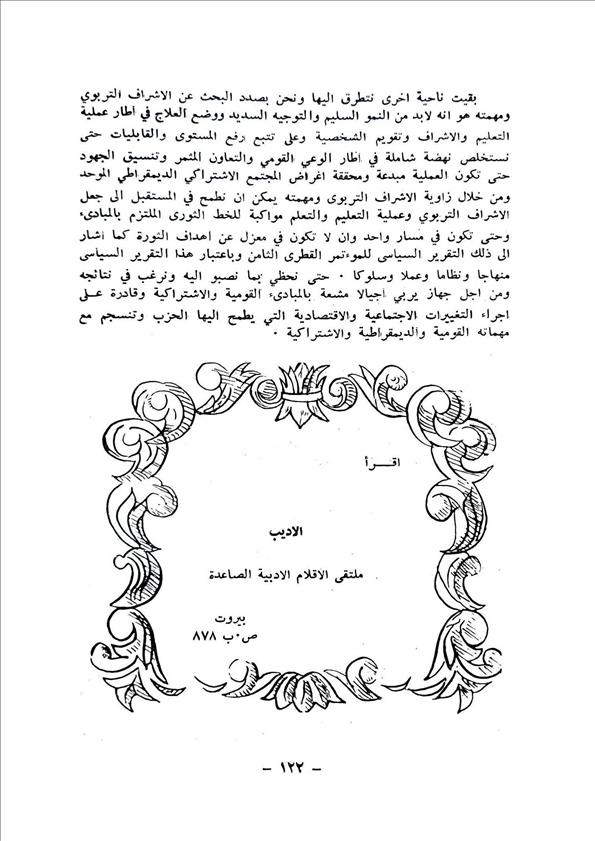 بقيت ناحية اخرى نتطرق اليها ونحن بصدد البحث عن الاشراف التربوي
ومهمته هو انه لابد من النمو السليم والتوجيه السديد ووضع العلاج في اطار عملية
التعليم والاشراف وتقويم الشخصية وعلى تتبع رفع المستوى والقابليات حتى
نستخلص نهضة شاملة في اطار الوعي القومي والتعاون المثمر وتنسيق الجهود
حتى تكون العملية مبدعة ومحققة اغراض المجتمع الاشتراكي الديمقراطي الموحد
ومن خلال زاوية الاشراف التربوى ومهمته يمكن ان نطمح في المستقبل الى جعل
الاشراف التربوي وعملية التعليم والتعلم مواكبة للخط الثورى الملتزم بالمبادىء
وحتى تكون في مسار واحد وان لا تكون في معزل عن اهداف الثورة كما اشار
الى ذلك التقرير السياسى للموءتمر القطرى الثامن وباعتبار هذا التقرير السياسى
منهاجا ونظاما وعملا وسلوكا ٠ حتى نحظي بما نصبو اليه ونرغب في نتائجه
ومن اجل جهاز يربي اجيالا مشعة بالمبادىء القومية والاشتراكية وقادرة على
اجراء التغييرات الاجتماعية والاقتصادية التي يطمح اليها الحزب وتنسجم مع
مهماته القومية والديمقراطية والاشتراكية ٠
اقـــرأ
الاديب
ملتقى الاقلام الادبية الصاعدة
بيروت
ص٠ب ٨٧٨
- ١٢٢ -